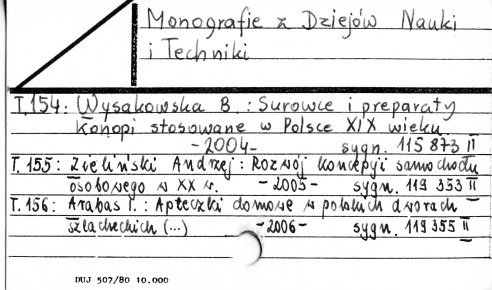 Monografie z Dziejów Nauki
i Techniki
T.154: Wysakowska B. : Surowce i preparaty
Konopi stosowane w Polsce XIX wieku.
-2004- sygn. 115 873 II
T.155: Zieliński Andrzej: Rozwój koncepcji samochodu
osobowego w XX w. -2005- sygn. 119 353 II
T.156: Arabas I.: Apteczki domowe w polskich dworach
szlacheckich (...) -2006- sygn. 119 355 II
DUJ 507/80 10.000